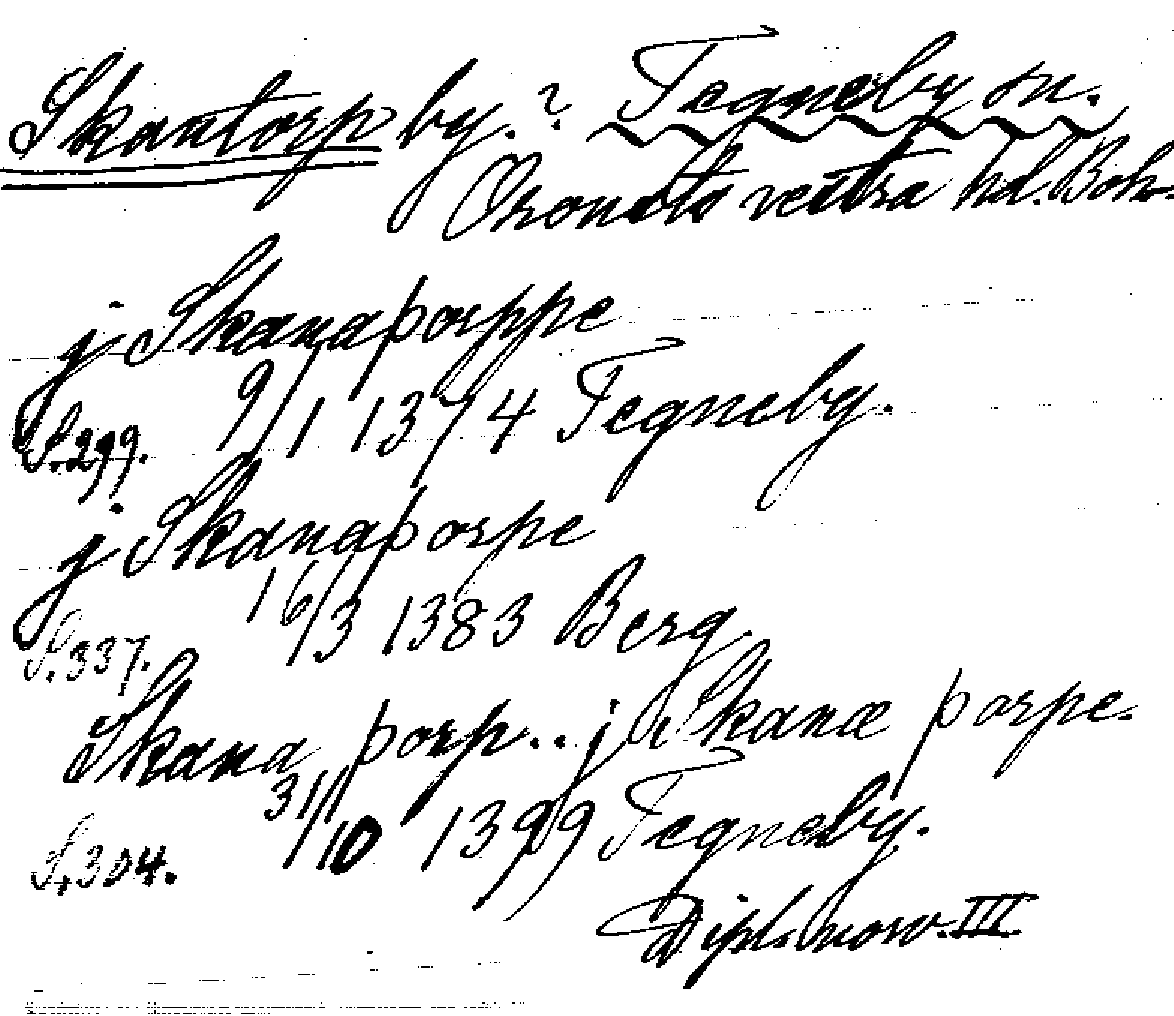 Skantorp by.? Tegneby sn.
Oronsts vestra hd. Boh.
j Skanaþorppe
S.299. 9/1 1374 Tegneby.
j Skanaþorpe
S.337. 16/3 1383 Berg
Skana þorp.. j Skanæ þorpe.
S.304. 31/10 1399 Tegneby.
Dipl. norv. III